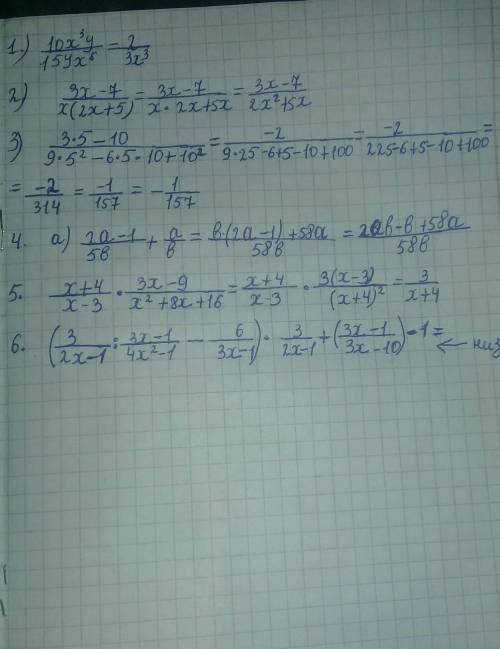 1.) 10x³y/15yx⁶ = 2/3x³
2) 3x-7/x(2x+5) = 3x-7/x·2x+5x = 3x-7/2x²+5x
3) 3·5-10/9·5²-6·5-10+10² = -2/9·25-6+5-10+100 = -2/225-6+5-10+100 =
= -2/314 = -1/157 = -1/157
4. а) 2a-1/5в + a/в = в·(2a-1)+58a/58в = 2aв-в+58a/58в
5. x+4/x-3 · 3x-9/x²+8x+16 = x+4/x-3 · 3(x-3)/(x+4)² = 3/x+4
6. (3/2x-1 : 3x-1/4x²-1 - 6/3x-1) · 3/2x-1 + (3x-1/3x-10) - 1 =
← низ